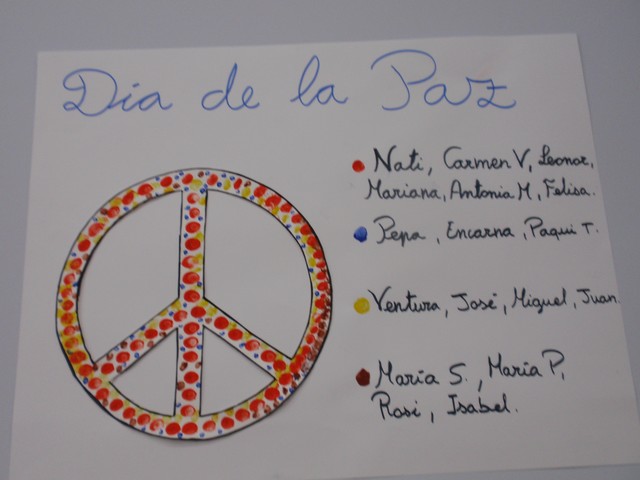 Dia de la Paz
Nati, Carmen V, Leonor,
Mariana, Antonia M, Felisa.
Pepa, Encarna, Paqui T.
Ventura, José, Miguel, Juan.
Maria S., Maria P,
Rosi, Isabel.